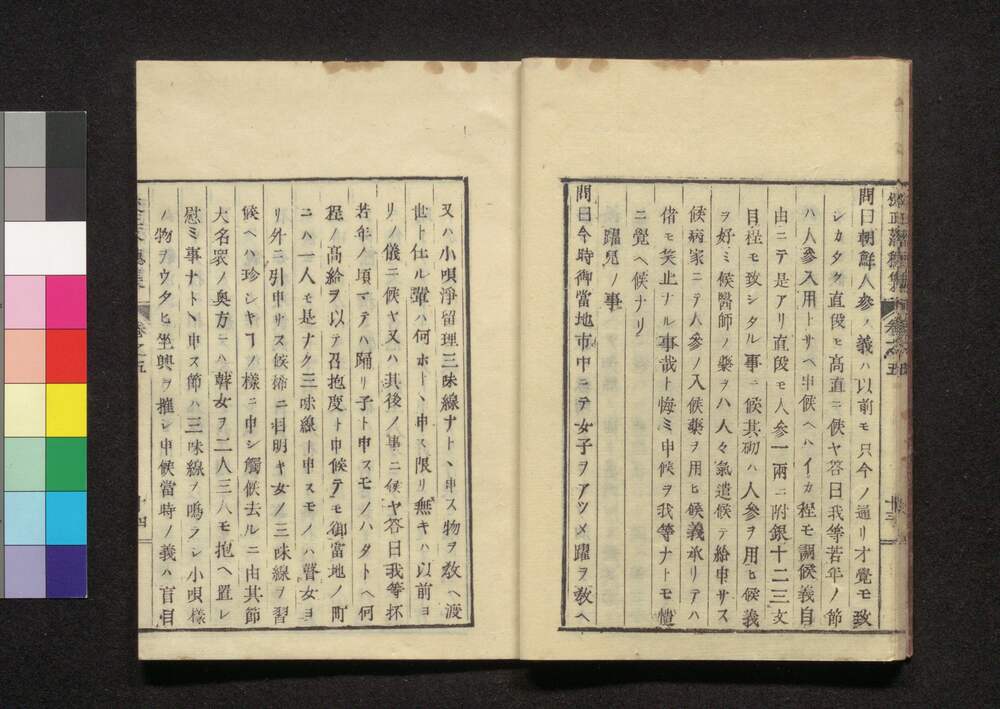 問曰朝鮮人參ノ義ハ以前モ只今ノ通リ才覺モ致
シカタク直段モ高直ニ候ヤ答曰我等若年ノ節
ハ人參入用トサヘ申候ヘハイカ程モ調候義自
由ニテ是アリ直段モ人參一兩ニ附銀十二三文
目程モ致シタル事ニ候其砌ハ人參ヲ用ヒ候義
ヲ好ミ候醫師ノ藥ヲハ人々氣遣候テ給申サス
候病家ニテ人參ノ入候藥ヲ用ヒ候義承リテハ
偖モ笑止ナル事哉ト悔ミ申候ヲ我等ナトモ慥
ニ覺ヘ候ナリ
躍兒ノ事
問曰今時御當地市中ニテ女子ヲアツメ躍ヲ敎ヘ
又ハ小唄淨留理三味線ナト丶申ス物ヲ敎ヘ渡
世ト仕ル輩ハ何ホト丶申ス限リ無キハ以前ヨ
リノ儀ニ候ヤ又ハ其後ノ事ニ候ヤ答曰我等抔
若年ノ頃マテハ踊リ子ト申スモノハタトヘ何
程ノ高給ヲ以テ召抱度ト申候テモ御當地ノ町
ニハ一人モ是ナク三味線ト申スモノハ瞽女ヨ
リ外ニ引申サス候稀ニ目明キ女ノ三味線ヲ習
候ヘハ珍シキヿノ樣ニ申シ觸候去ルニ由其節
大名衆ノ奧方ニハ瞽女ヲ二人三人モ抱ヘ置レ
慰ミ事ナト丶申ス節ハ三味線ヲ鳴ラシ小唄樣
ノ物ヲウタヒ坐興ヲ摧シ申候當時ノ義ハ盲目
卷之五
十三
卷之五
十四